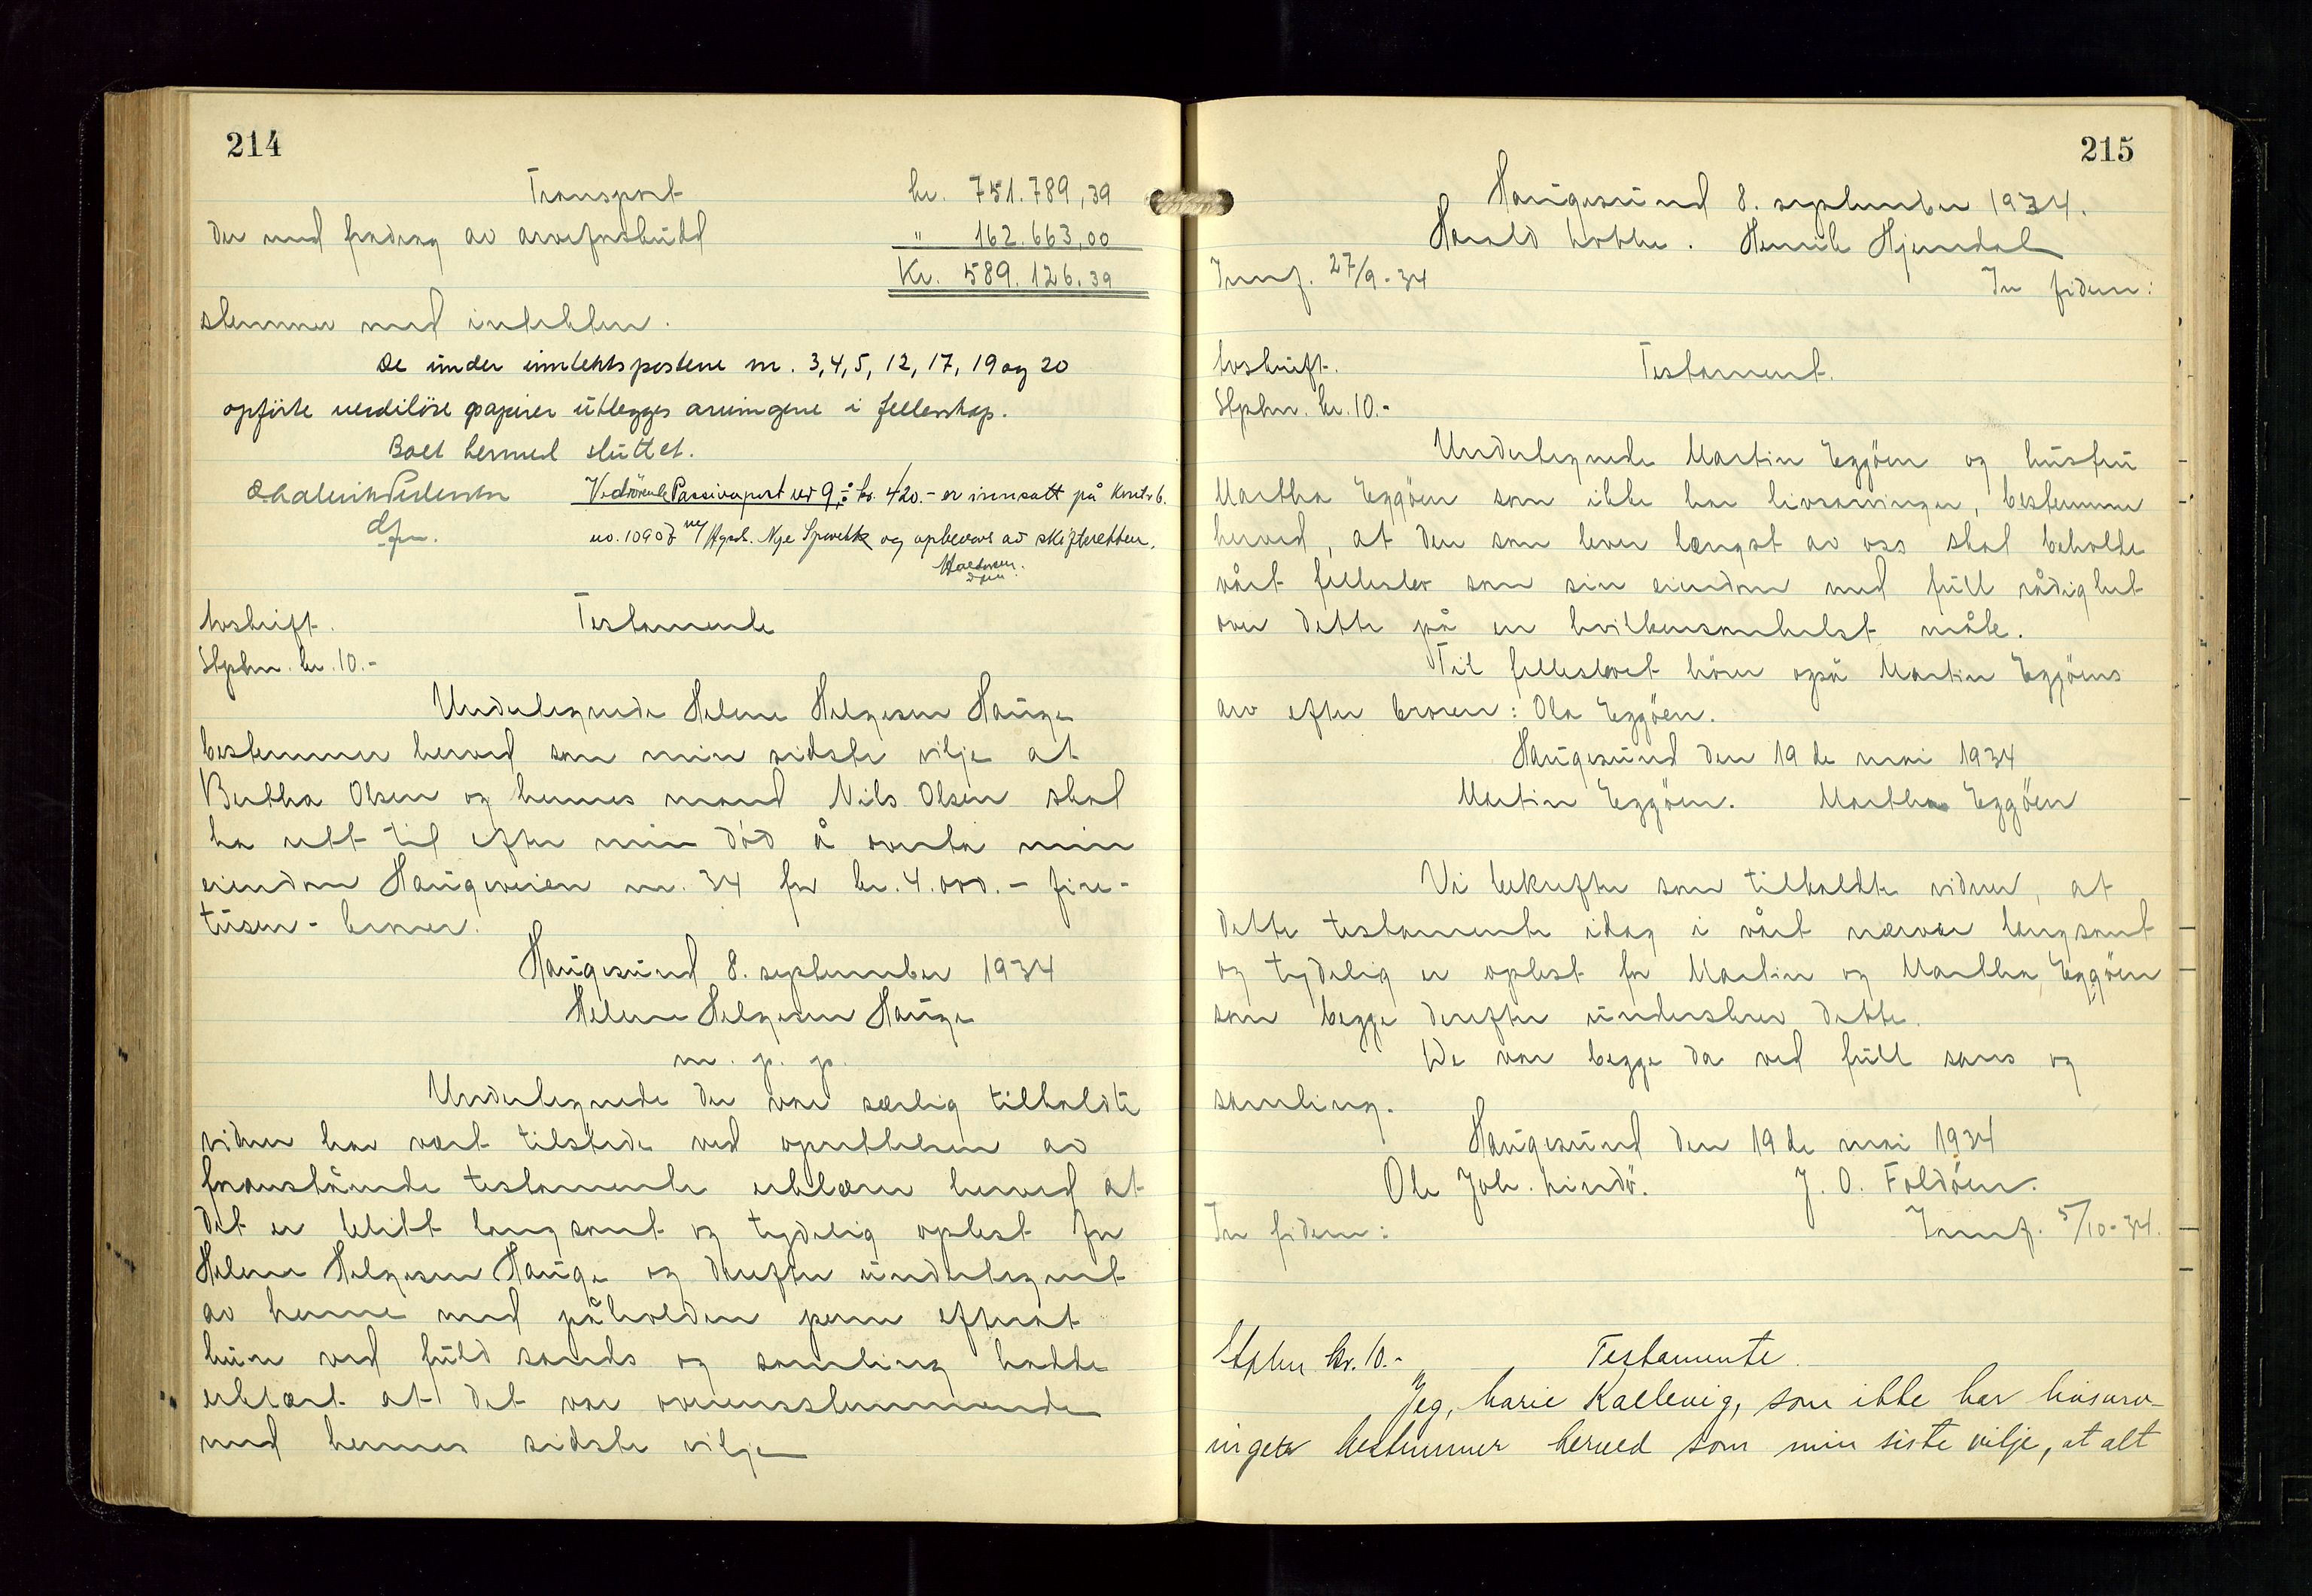 214
Transport kr. 751.789,39
der med fradrag av arveforskudd " 162.663,00
Kr. 589.126,39
stemmer med inntekten.
De under inntektspostene nr. 3, 4, 5, 12, 17, 19 og 20
opförte verdilöse papirer utlegges arvingene i fellesskap.
Boet hermed sluttet.
dfm.
Vedrörende Passivapost ved 9, kr. 420.- er innsatt på Konto 6.
no. 10907 ve/ Hgsd. Nye Sparebk og opbevares av skifteretten.
Avskrift. Testamente
Stpln. kr. 10.-
Undertegnede Helene Helgesen Hauge
bestemmer herved som min sidste vilje at
Bertha Olsen og hennes mand Nils Olsen skal
ha rett til efter min död å overta min
eiendom Haugeveien nr. 34 for kr. 4.000.- fire-
tusen- kroner.
Haugesund 8. september 1934
Helene Helgesen Hauge
m. p. p.
Undertegnede der som særlig tilkaldte
vidner har vært tilstede ved oprettelsen av
foranstående testamente erklærer herved at
det er blitt langsomt og tydelig oplest for
Helene Helgesen Hauge og derefter undertegnet
av henne med påholden penn efterat
hun ved fuld sands og samling hadde
erklært at det var overensstemmende
med hennes sidste vilje
215
Haugesund 8. september 1934.
Harald Lothe. Henrik Hjemdal
Innf. 27/9-34 In fidem:
Avskrift. Testament.
Stpln. kr. 10.-
Undertegnede Martin Eggöen og husfru
Martha Eggöen som ikke har livsarvinger, bestemmer
herved, at den som lever længst av oss skal beholde
vårt felleslev som sin eiendom med full rådighet
over dette på en hvilkensomhelst måte.
Til fellesboet hörer også Martin Eggöens
arv efter broren: Ola Eggöen.
Haugesund den 19de mai 1934
Martin Eggöen. Martha Eggöen
Vi bekrefter som tilkaldte vidner, at
dette testamente idag i vårt nærvær langsomt
og tydelig er oplest for Martin og Martha Eggöen
som begge derefter underskrev dette.
De var begge da ved full sans og
samling.
Haugesund den 19de mai 1934
Ole Joh. Lindö. J. O. Foldöen.
In fidem: Innf. 5/10-34.
Stpln kr. 10.- Testamente.
Jeg, Marie Kallevig, som ikke har livsarv-
inger bestemmer herved som min siste vilje, at alt